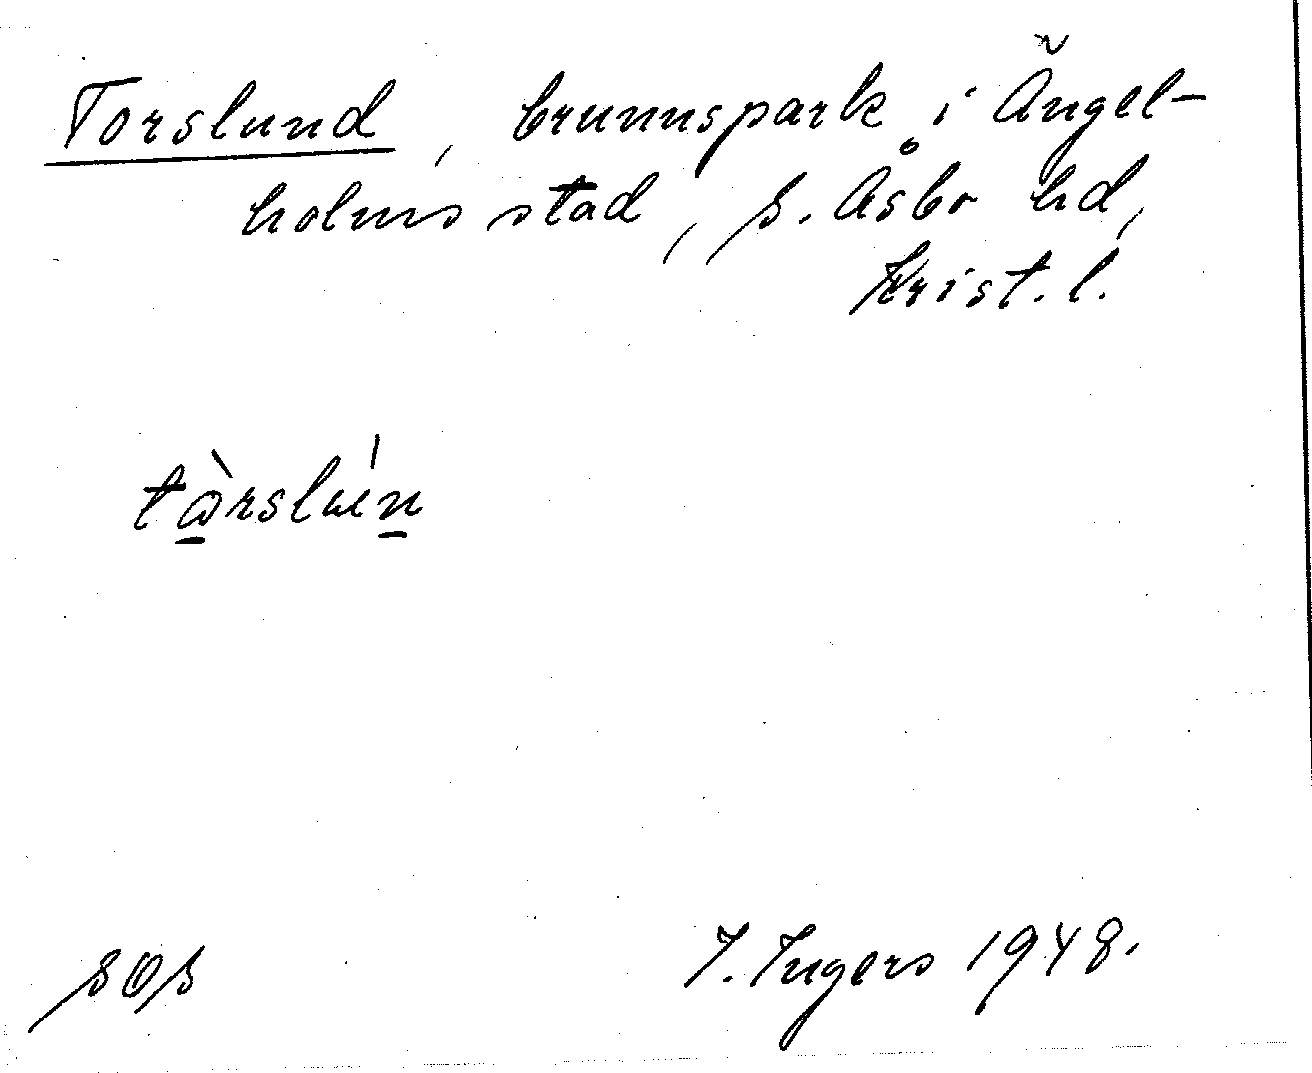 Torslund, brunnspark i Ängel-
holms stad, S. Åsbo hd,
Krist. l.
tɷ̀rslún
SOS
I. Ingers 1948.